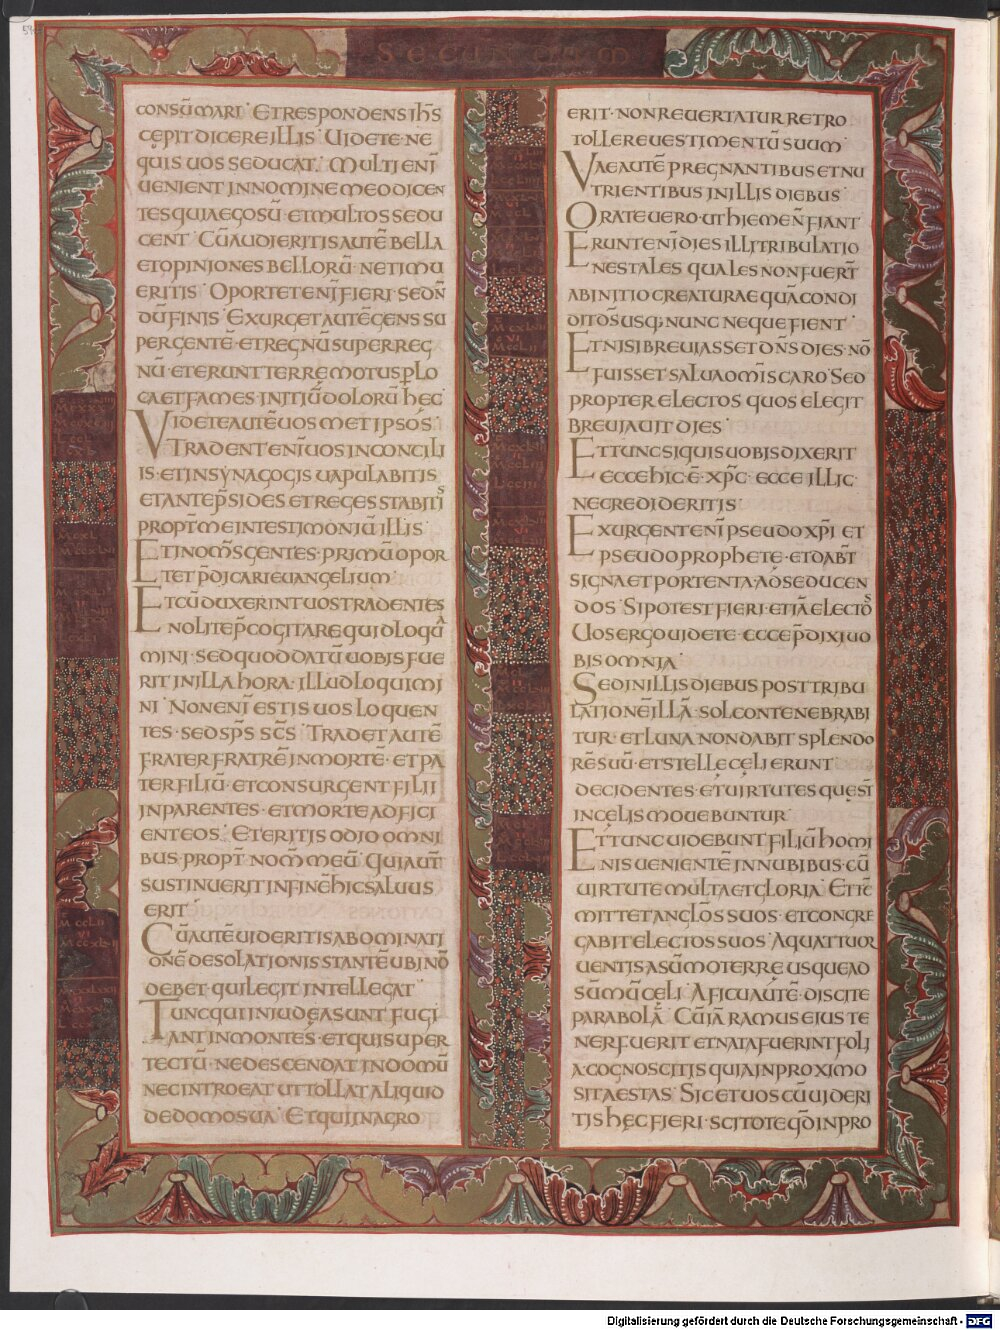 SECUNDUM
CONSŪMARI · ET RESPONDENS IH̄S
CĘPIT DICERE ILLIS · UIDETE NE
QUIS UOS SEDUCAT · MULTI ENĪ
UENIENT IN NOMINE MEO DICEN
TES QUIA EGO SŪ · ET MULTOS SEDU
CENT · CŪ AUDIERITIS AUTĒ BELLA
ET OPINIONES BELLORŪ · NE TIMU
ERITIS · OPORTET ENĪ FIERI · SED N̄
DŪ FINIS · EXURGET AUTĒ GENS SU
PER GENTĒ · ET REGNŪ SUPER REG
NŪ · ET ERUNT TERRĘMOTUS P LO
CA ET FAMES · INITIŪ DOLORŪ HĘC
VIDETE AUTĒ UOSMET IPSOS ·
TRADENT ENĪ UOS IN CONCILI
IS · ET IN SYNAGOGIS UAPULABITIS
ET ANTE P̄SIDES ET REGES STABITIS
PROPT̄ ME IN TESTIMONIŪ ILLIS ·
ET IN OM̄S GENTES · PRIMŪ OPOR
TET P̄DICARI EUANGELIUM ·
ET CŪ DUXERINT UOS TRADENTES
NOLITE P̄COGITARE QUID LOQUA
MINI · SED QUOD DATŪ UOBIS FUE
RIT IN ILLA HORA · ILLUD LOQUIMI
NI · NON ENĪ ESTIS UOS LOQUEN
TES · SED SP̄S SC̄S · TRADET AUTĒ
FRATER FRATRĒ IN MORTĒ · ET PA
TER FILIŪ · ET CONSURGENT FILII
IN PARENTES · ET MORTE ADFICI
ENT EOS · ET ERITIS ODIO OMNI
BUS · PROPT̄ NOM̄ MEŪ · QUI AUT̄
SUSTINUERIT IN FINĒ HIC SALUUS
ERIT ·
CŪ AUTĒ UIDERITIS ABOMINATI
ONĒ DESOLATIONIS STANTĒ UBI NŌ
DEBET · QUI LEGIT INTELLEGAT ·
TUNC QUI IN IUDĘA SUNT FUGI
ANT IN MONTES · ET QUI SUPER
TECTŪ · NE DESCENDAT IN DOMŪ
NEC INTROEAT UT TOLLAT ALIQUID
DE DOMO SUA · ET QUI IN AGRO
ERIT · NON REUERTATUR RETRO
TOLLERE UESTIMENTŪ SUUM ·
VAE AUTĒ PREGNANTIBUS ET NU
TRIENTIBUS IN ILLIS DIEBUS ·
ORATE UERO · UT HIEME N̄ FIANT ·
ERUNT ENĪ DIES ILLI TRIBULATIO
NES TALES QUALES NON FUER̄T
AB INITIO CREATURAE QUĀ CONDI
DIT DS̄ USQ; NUNC NEQUE FIENT ·
ET NISI BREUIASSET DN̄S DIES · NŌ
FUISSET SALUA OMIS CARO · SED
PROPTER ELECTOS QUOS ELEGIT
BREUIAUIT DIES ·
ET TUNC SI QUIS UOBIS DIXERIT
ECCE HIC Ē XP̄C · ECCE ILLIC ·
NE CREDIDERITIS ·
EXURGENT ENĪ PSEUDO XP̄I ET
PSEUDO PROPHETĘ · ET DAB̄T
SIGNA ET PORTENTA AD SEDUCEN
DOS · SI POTEST FIERI · ETIĀ ELECTOS
UOS ERGO UIDETE · ECCE P̄DIXI UO
BIS OMNIA ·
SED IN ILLIS DIEBUS POST TRIBU
LATIONĒ ILLĀ SOL CONTENEBRABI
TUR · ET LUNA NON DABIT SPLENDO
RĒ SUŪ · ET STELLĘ CĘLI ERUNT
DECIDENTES · ET UIRTUTES QUĘ ST̄
IN CĘLIS MOUEBUNTUR ·
ET TUNC UIDEBUNT FILIŪ HOMI
NIS UENIENTĒ IN NUBIBUS · CŪ
UIRTUTE MULTA ET GLORIA · ET TC̄
MITTET ANGLŌS SUOS · ET CONGRE
GABIT ELECTOS SUOS · A QUATTUOR
UENTIS A SŪMO TERRĘ USQUE AD
SŪMŪ CĘLI · A FICU AUTĒ DISCITE
PARABOLĀ · CŪ IĀ RAMUS EIUS TE
NER FUERIT ET NATA FUERINT FOLI
A COGNOSCITIS QUIA IN PROXIMO
SIT AESTAS · SIC ET UOS CŪ UIDERI
TIS HĘC FIERI · SCITOTE QD̄ IN PRO
Digitalisierung gefördert durch die Deutsche Forschungsgemeinschaft - DFG